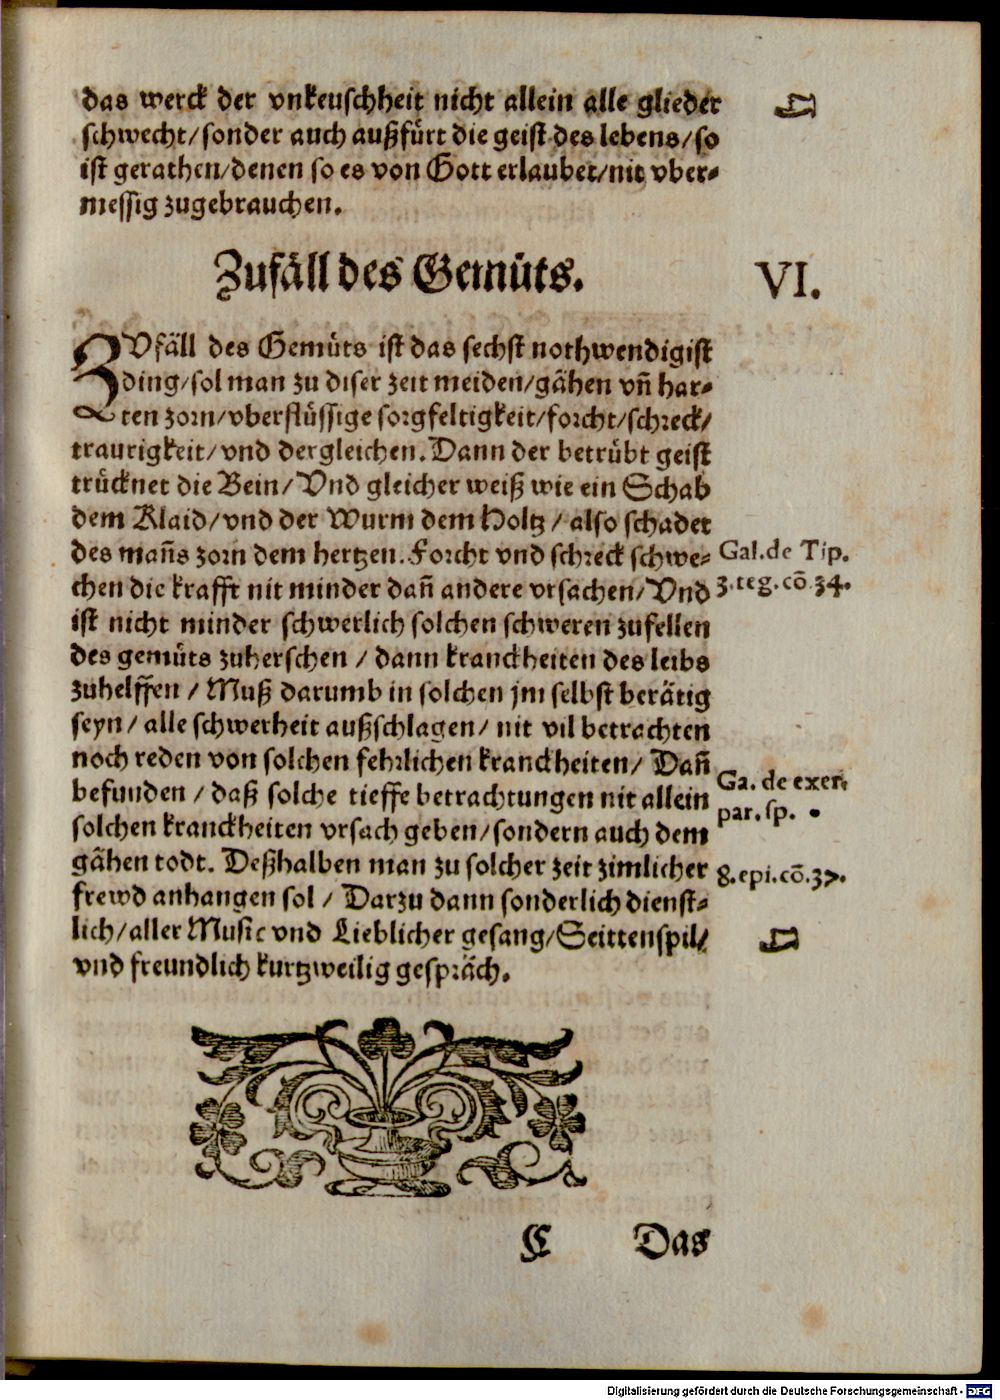 das werck der vnkeuschheit nicht allein alle glieder
schwecht/sonder auch außfürt die geist des lebens/so
ist gerathen/denen so es von Gott erlaubet/nit vber-
messig zugebrauchen.
Zufäll des Gemüts.
VI.
ZVfäll des Gemüts ist das sechst nothwendigist
ding/sol man zu diser zeit meiden/gähen vñ har-
ten zorn/vberflüssige sorgfeltigkeit/forcht/schreck/
traurigkeit/vnd dergleichen. Dann der betrübt geist
trücknet die Bein/Vnd gleicher weiß wie ein Schab
dem Klaid/vnd der Wurm dem Holtz/also schadet
des mañs zorn dem hertzen. Forcht vnd schreck schwe-
Gal. de Tip.
chen die krafft nit minder dañ andere vrsachen/Vnd
3. teg. cõ. 34.
ist nicht minder schwerlich solchen schweren zufellen
des gemüts zuherschen/dann kranckheiten des leibs
zuhelffen/Muß darumb in solchen jm selbst berätig
seyn/alle schwerheit außschlagen/nit vil betrachten
noch reden von solchen fehrlichen kranckheiten/Dañ
Ga. de exer.
befunden/daß solche tieffe betrachtungen nit allein
par. sp.
solchen kranckheiten vrsach geben/sondern auch dem
gähen todt. Deßhalben man zu solcher zeit zimlicher
8. epi. cõ. 37.
frewd anhangen sol/Darzu dann sonderlich dienst-
lich/aller Music vnd Lieblicher gesang/Seittenspil/
vnd freundlich kurtzweilig gespräch.
C Das
Digitalisierung gefördert durch die Deutsche Forschungsgemeinschaft - DFG